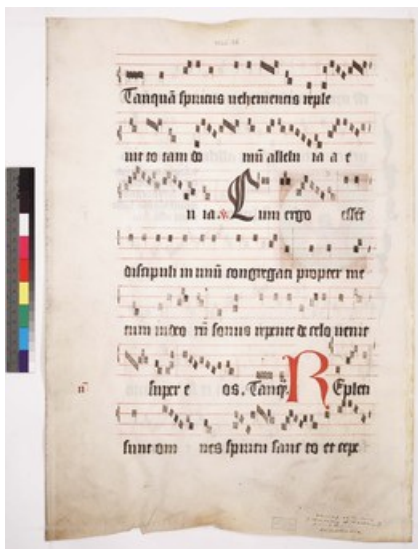 Tanquā spiritus vehementis reple
uit to tam do mū alleluia a e
u ia. ℣ Cum ergo essēt
discipuli in unū congregati propter me
tum iudeo rū sonus repente de celo uenit
super e os. Tanq̄. Repleti
sunt om nes spiritu sanc to et cepe